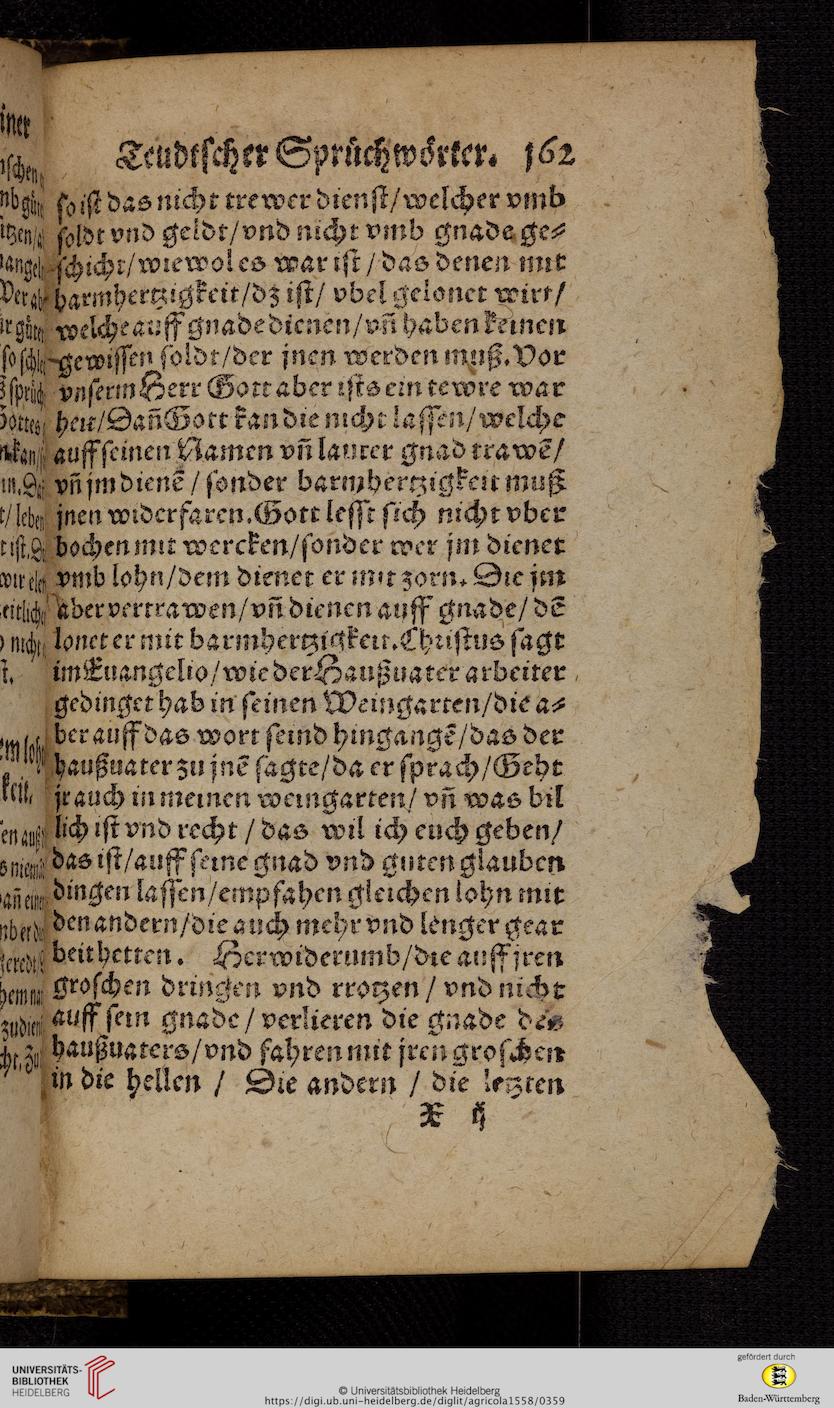 Teudtscher Sprüchwörter. 162
so ist das nicht trewer dienst/welcher vmb
soldt vnd geldt/vnd nicht vmb gnade ge⸗
schicht/wiewol es war ist/das denen mit
barmhertzigkeit/dz ist/ vbel gelonet wirt/
welche auff gnade dienen/vñ haben keinen
gewissen soldt/der jnen werden muß. Vor
vnserm Herr Gott aber ists ein tewre war
heit/Dañ Gott kan die nicht lassen/welche
auff seinen Namen vñ lauter gnad trawẽ/
vñ jm dienẽ/sonder barmhertzigkeit muß
jnen widerfaren. Gott lesst sich nicht vber
bochen mit wercken/sonder wer jm dienet
vmb lohn/dem dienet er mit zorn. Die jm
aber vertrawen/vñ dienen auff gnade/ dẽ
lonet er mit barmhertzigkeit. Christus sagt
im Euangelio/wie der Haußuater arbeiter
gedinget hab in seinen Weingarten/die a⸗
ber auff das wort seind hingangẽ/das der
haußuater zu jnẽ sagte/da er sprach/Geht
jr auch in meinen weingarten/ vñ was bil
lich ist vnd recht/das wil ich euch geben/
das ist/auff seine gnad vnd guten glauben
dingen lassen/empfahen gleichen lohn mit
den andern/die auch mehr vnd lenger gear
beit hetten. Herwiderumb/die auff jren
groschen dringen vnd trotzen/ vnd nicht
auff sein gnade/ verlieren die gnade des
haußuaters/vnd fahren mit jren groschen
in die hellen / Die andern / die letzten
X ij
UNIVERSITÄTS-
BIBLIOTHEK
HEIDELBERG
© Universitätsbibliothek Heidelberg
https://digi.ub.uni-heidelberg.de/diglit/agricola1558/0359
gefördert durch
Baden-Württemberg